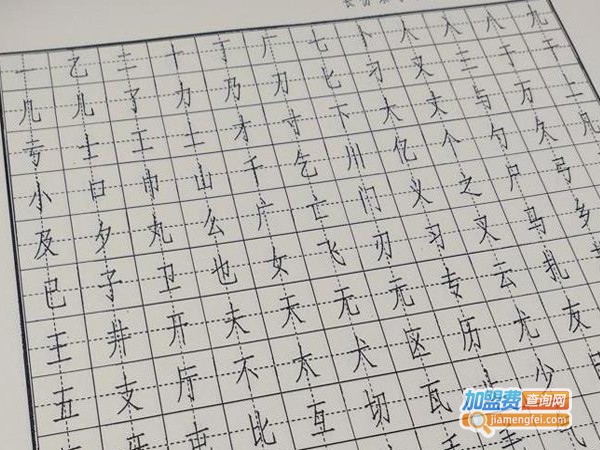 一 乙 二 十 丁 厂 七 卜 人 入 八 九
几 儿 了 力 乃 刀 匕 刁 又 三 于 干
亏 士 工 土 才 寸 下 大 丈 与 万 上
小 口 巾 山 千 乞 川 亿 个 勺 久 凡
及 夕 丸 么 广 亡 门 义 之 尸 弓
巳 子 卫 也 女 飞 刃 习 叉 马 乡
王 井 开 夫 天 无 元 专 云 扎
五 支 厅 不 太 犬 区 历 尤 友
牙 屯 比 互 切 瓦 少
加盟费查询网
jiamengfei.com